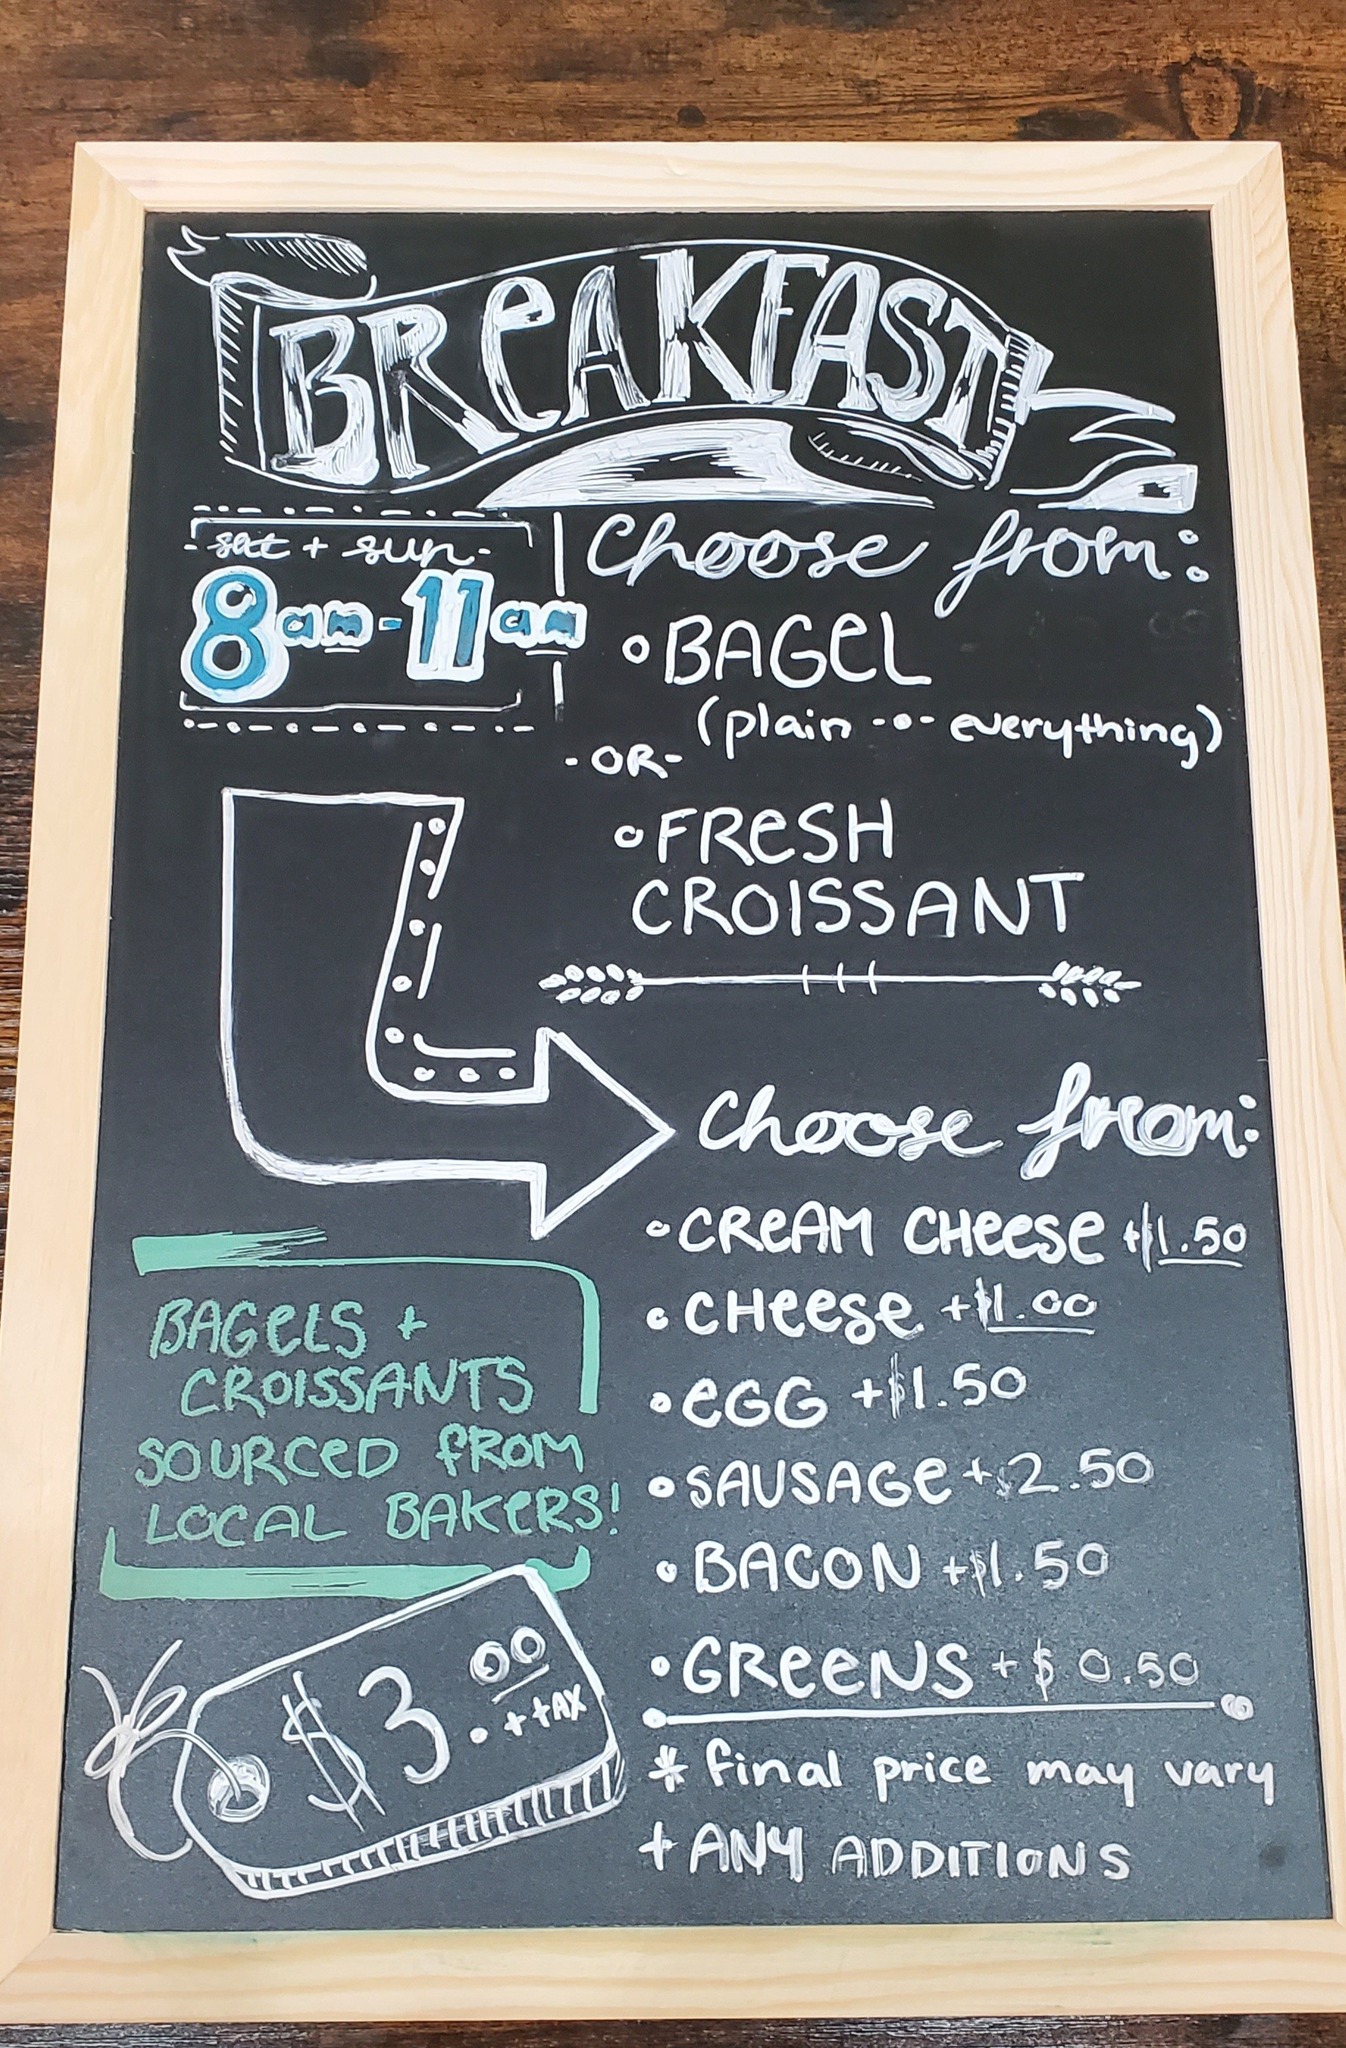 BREAKFAST
sat + sun
8am-11am
Choose from:
BAGEL
(plain -o- everything)
- OR -
FRESH
CROISSANT
Choose from:
CREAM CHEESE +$1.50
CHEESE +$1.00
EGG +$1.50
SAUSAGE +$2.50
BACON +$1.50
GREENS +$0.50
* final price may vary
+ ANY ADDITIONS
BAGELS +
CROISSANTS
SOURCED FROM
LOCAL BAKERS!
$3.00
+ tAX